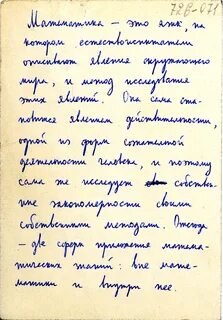 728-071
Математика – это язык, на
котором естествоиспытатели
описывают явления окружающего
мира, и метод исследования
этих явлений. Она сама ста-
новится явлением действительности,
одной из форм сознательной
деятельности человека, и поэтому
сама же исследует собствен-
ные закономерности своими
собственными методами. Отсюда
– две сферы приложения матема-
тических знаний: вне мате-
матики и внутри нее.